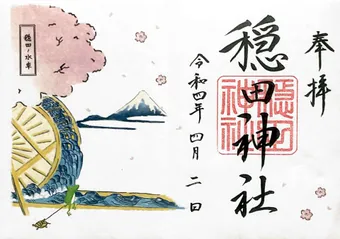 奉拝
穏田神社
令和四年四月二日
穏田ノ水車
穏田
神社